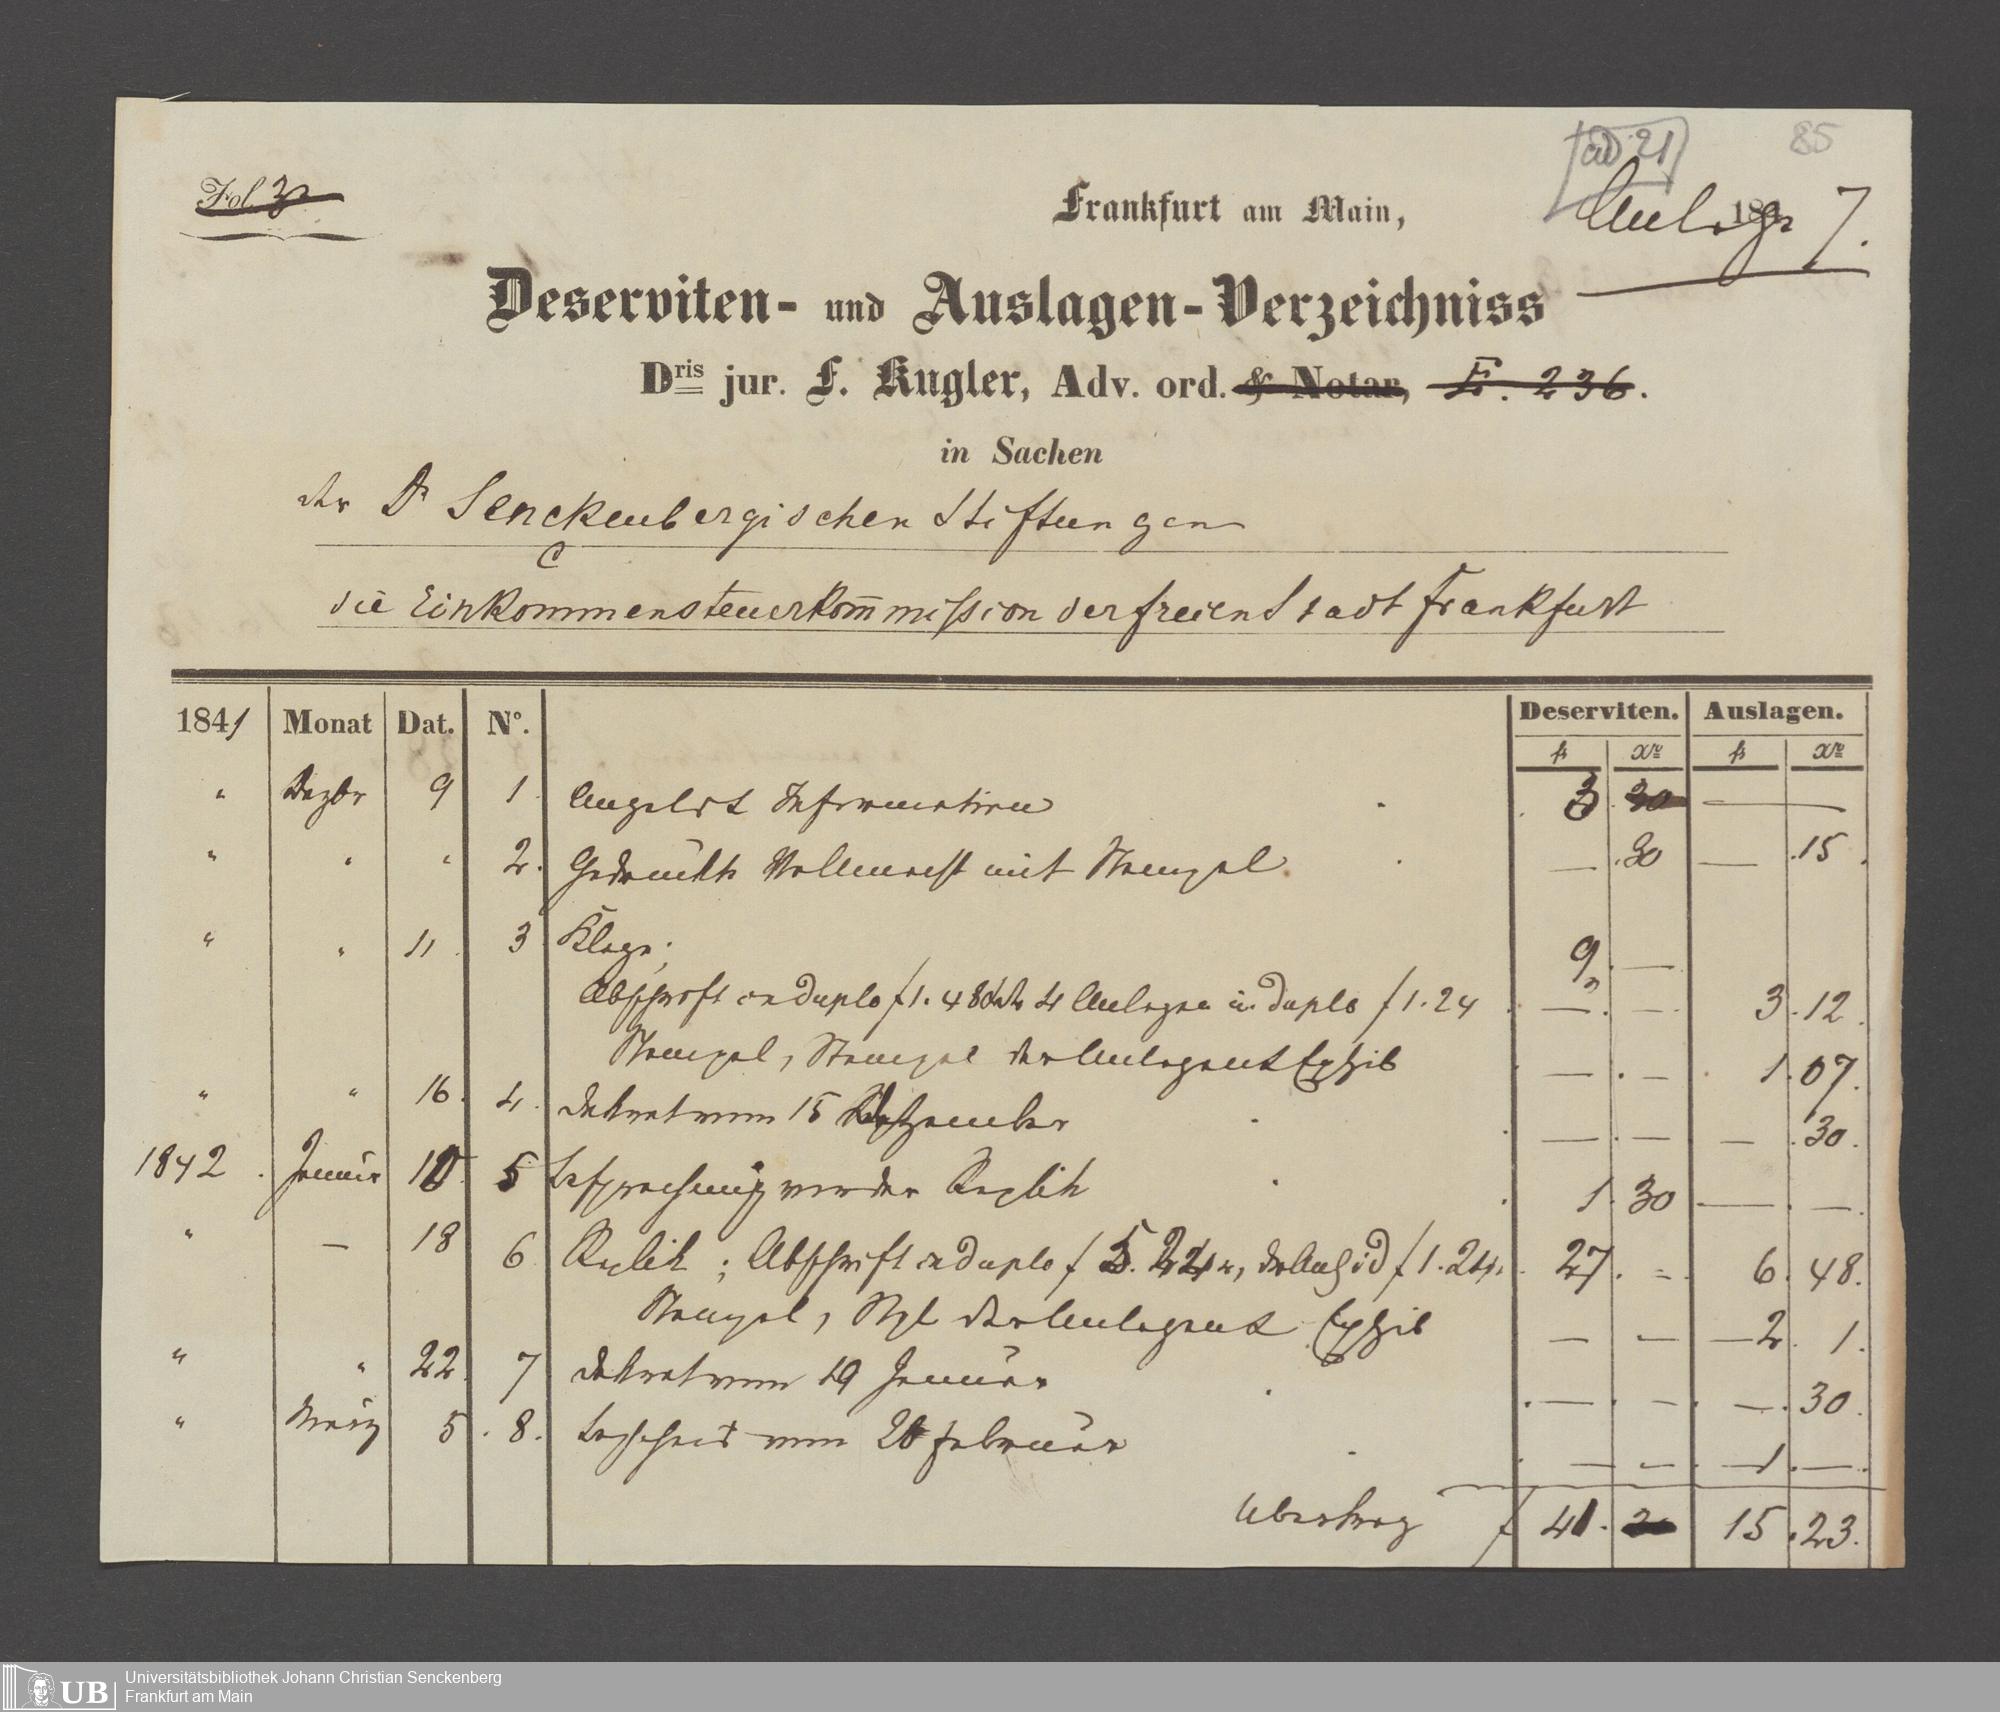 [ad 21]
85
Fol. 32
Frankfurt am Main,
184
Anlage 7.
Deserviten- und Auslagen-Verzeichniss
Dris jur. F. Kugler, Adv. ord. & Notar, E. 236.
in Sachen
der Dr Senckenbergischen Stiftungen
C
die Einkommensteuerkommission der freien Stadt Frankfurt
1841 Monat Dat. No. Deserviten. Auslagen.
fl xr fl xr
" Dezbr 9 1 Information 3 30 —
" " " 2. Gedruckte Vollmacht mit Stempel — . 30 — . 15.
" " 11 3 Klage; 9 . —
Abschrift in duplo f 1. 48 4 Anlagen in duplo f 1. 24 — . — 3 . 12.
Stempel, Stempel der Anlagen & Exhib — . — 1. 07.
" " 16. 4. Dekret vom 15 Dezember — . — — . 30.
1842. Januar 10 5 Besprechung vor der Replik 1. 30 — . — .
" — 18 6 Replik; Abschrift in duplo f 5. 24 x, der Anl id f 1. 24. 27. = . 6. 48.
Stempel, Stpl der Anlagen & Exhib — — — 2. 1.
" " 22 7 Dekret vom 19 Januar — . — — . 30.
" März 5. 8. Bescheid vom 28 Februar — — — 1. — .
Übertrag f 41. 15. 23.
UB Universitätsbibliothek Johann Christian Senckenberg
Frankfurt am Main